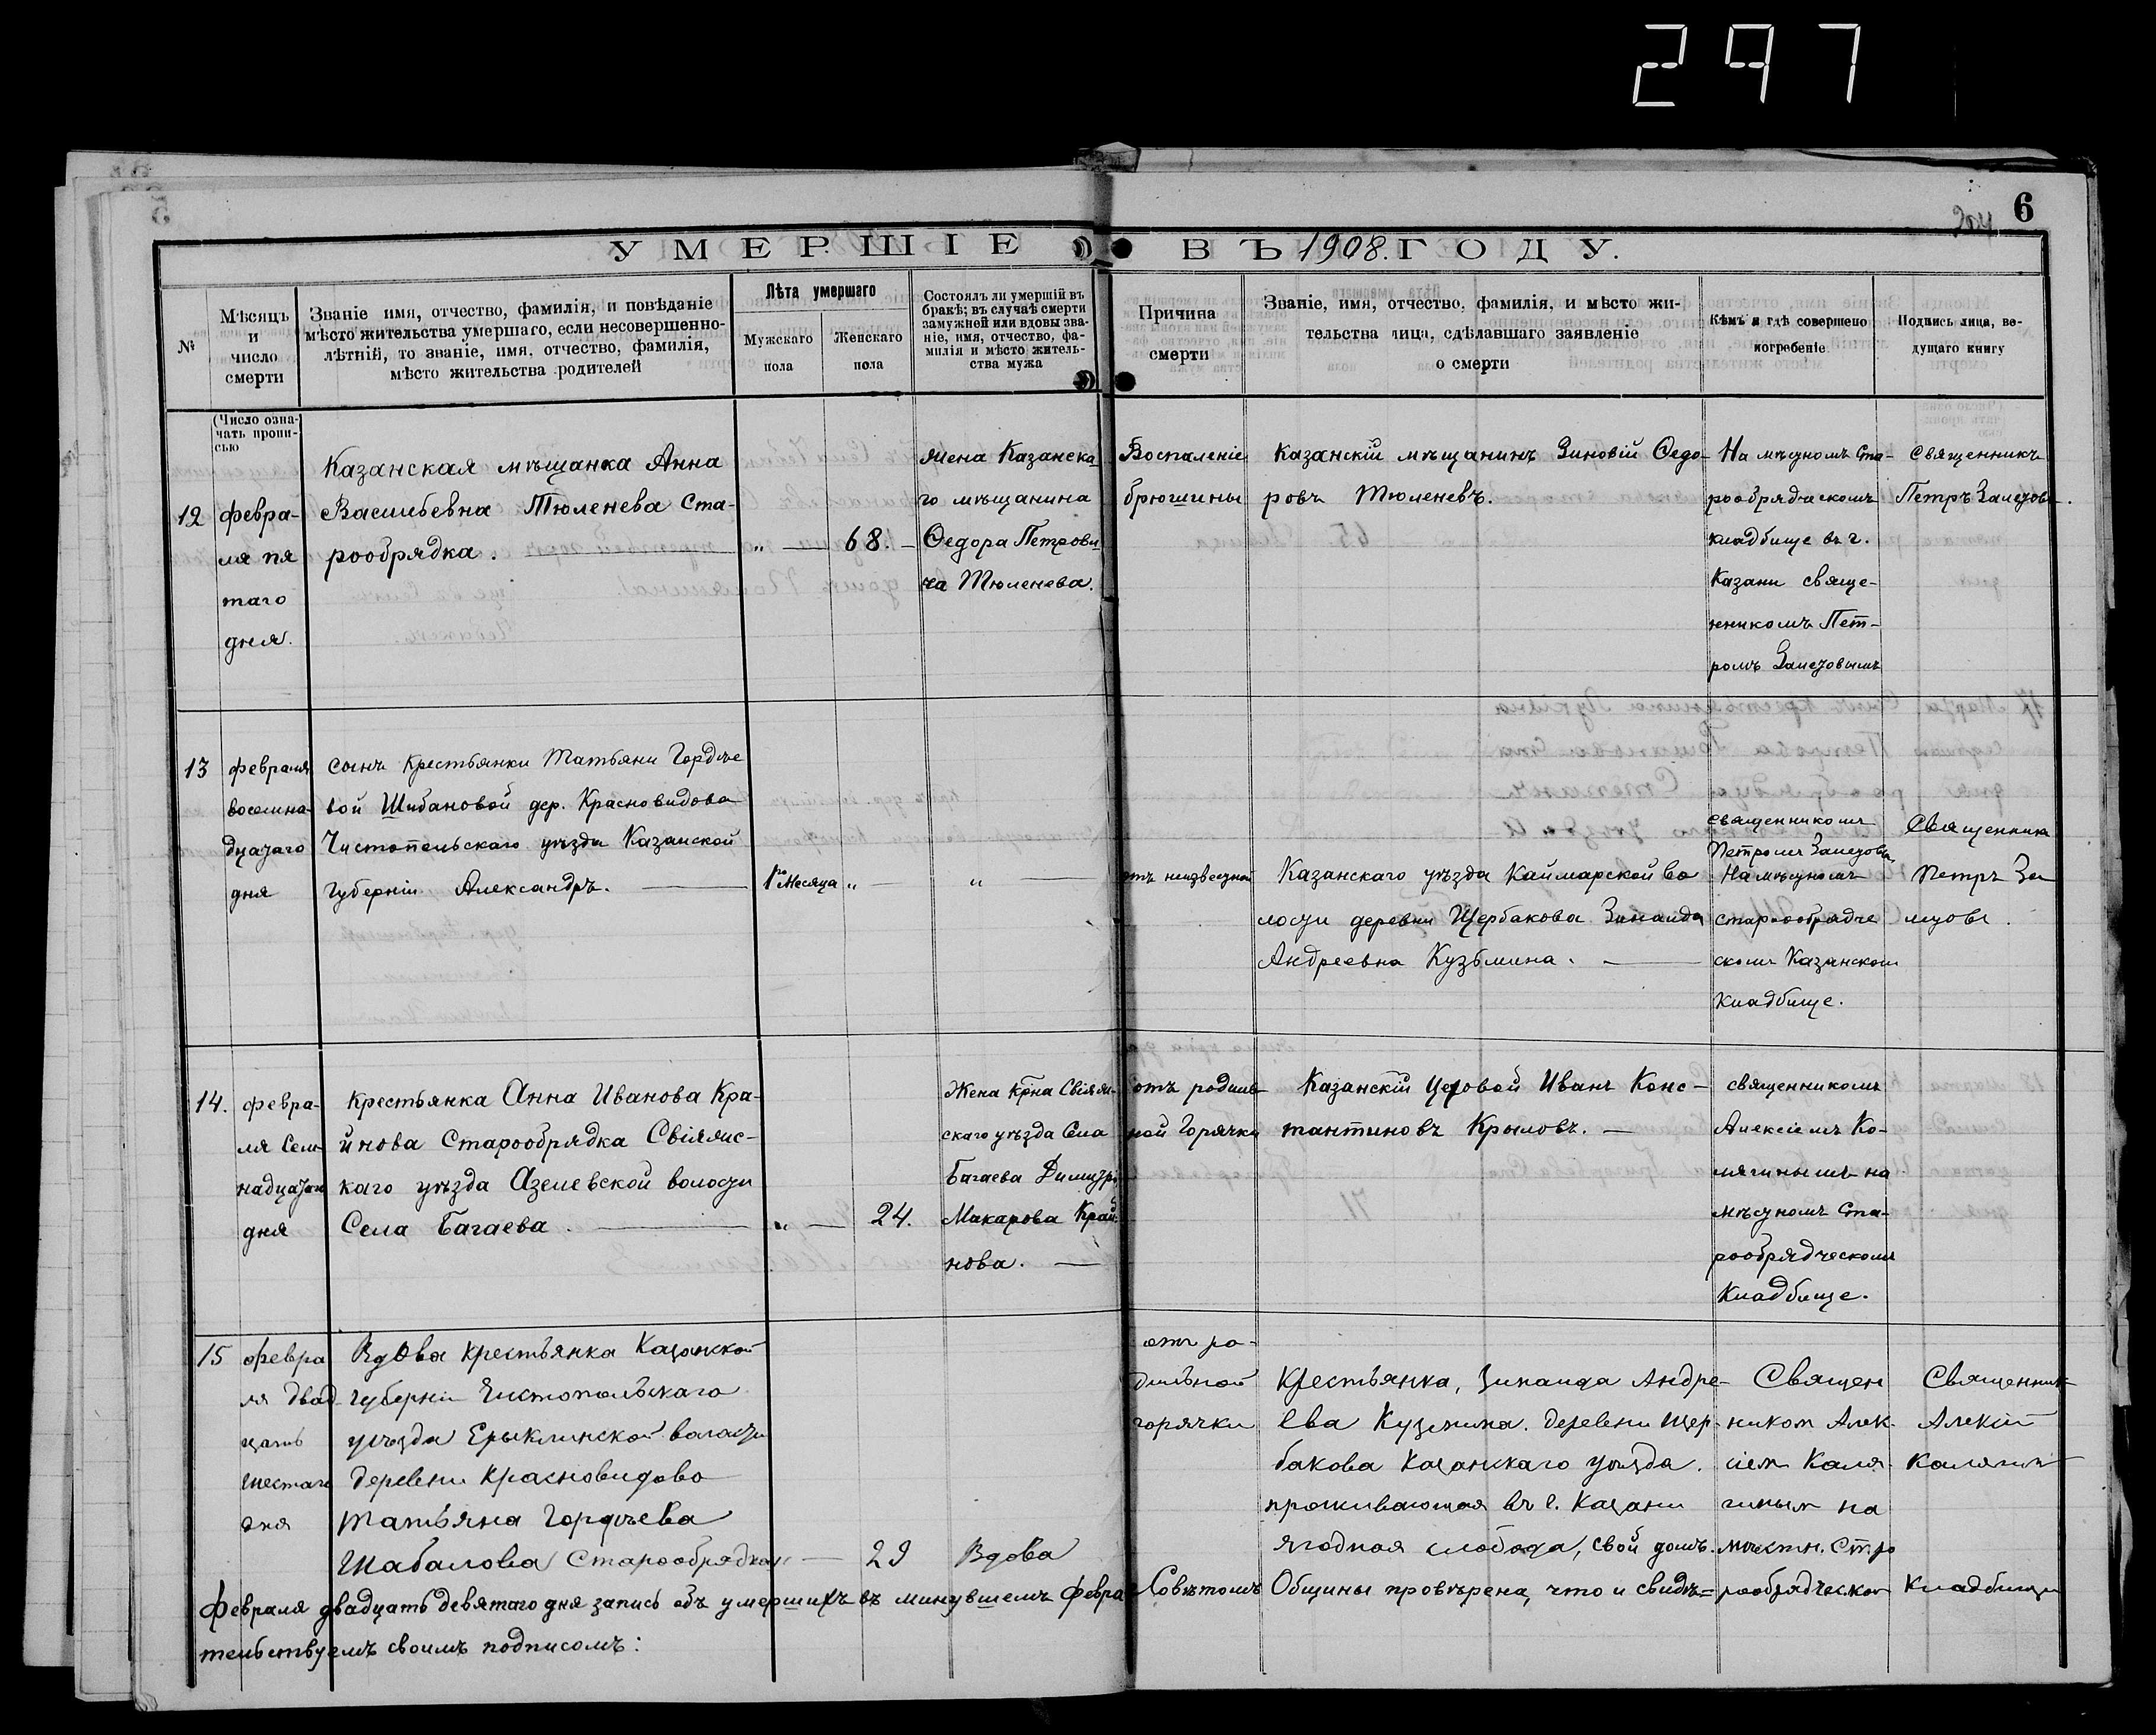 297
6
УМЕРШІЕ ВЪ 1908. ГОДУ.
№
Мѣсяцъ
и
число
смерти
Званіе имя, отчество, фамилія, и повѣданіе
мѣсто жительства умершаго, если несовершенно-
лѣтній, то званіе, имя, отчество, фамилія,
мѣсто жительства родителей
Лѣта умершаго
Мужскаго
пола
Женскаго
пола
Состоялъ ли умершій въ
бракѣ; въ случаѣ смерти
замужней или вдовы зва-
ніе, имя, отчество, фа-
милія и мѣсто житель-
ства мужа
Причина
смерти
Званіе, имя, отчество, фамилія, и мѣсто жи-
тельства лица, сдѣлавшаго заявленіе
о смерти
Кѣмъ и гдѣ совершено
погребеніе
Подпись лица, ве-
дущаго книгу
(Число озна-
чать пропи-
сью
12
февра-
ля пя
таго
дня.
Казанская мѣщанка Анна
Васильевна Тюленева Ста-
рообрядка.
„
68.
Жена Казанска
го мѣщанина
Ѳедора Петрови
ча Тюленева.
Воспаленіе
брюшины
Казанскій мѣщанинъ Зиновій Ѳедо-
ровъ Тюленевъ.
На мѣстномъ Ста-
рообрядческомъ
кладбище въ г.
Казани свяще-
нникомъ Пет-
ромъ Залетовымъ
Священникъ
Петръ Залетовъ.
13
февраля
восемна-
дцатаго
дня
сынъ Крестьянки Татьяни Гордѣе
вой Шибановой дер. Красновидова
Чистопольскаго уѣзда Казанской
Губерніи Александръ.
1го Месяца
„
„
отъ неизвестной
Казанскаго уѣзда Каймарской во
лости деревни Щербакова Зинаида
Андреевна Кузьмина.
священникомъ
Петромъ Залетовы
На мѣстномъ
старообрядче
скомъ Казанском
Кладбище.
Священник
Петръ За
летовъ.
14.
февра-
ля Сем-
надцатаго
дня
Крестьянка Анна Иванова Кра-
йнова Старообрядка Свіяжс-
каго уѣзда Азелевской волости
Села Багаева.
„
24.
Жена Крна Свіяж-
скаго уѣзда Села
Багаева Димитрі
Макарова Край
нова.
отъ родиль
ной Горячки
Казанскій Цеховой Иванъ Конс-
тантиновъ Крыловъ.
священникомъ
Алексіемъ Ко-
лягинымъ на
мѣстномъ Ста-
рообрядческомъ
Кладбище.
15
февра
ля двад
цать
шестаго
дня
Вдова крестьянка Казанской
губерніи Чистопольскаго
уѣзда Ерыклинской волости
деревни Красновидово
Татьяна Гордѣева
Шабалова Старообрядка
„
29
Вдова
отъ ро-
дильной
горячки
Крестьянка, Зинаида Андре-
ева Кузмина. деревни Щер-
бакова Казанскаго уѣзда.
проживающая въ г. Казани
Ягодная слобода, свой домъ.
Священ
ником Алек
сіем Каля-
гиным на
мѣстн. Ст.ро
рообрядческом
Кладбищи
Священник
Алексій
Калягин
Февраля двадцать девятаго дня запись объ умершихъ въ минувшемъ Февра Совѣтомъ Общины провѣрена, что и свидѣ=
тельствуемъ своимъ подписомъ: